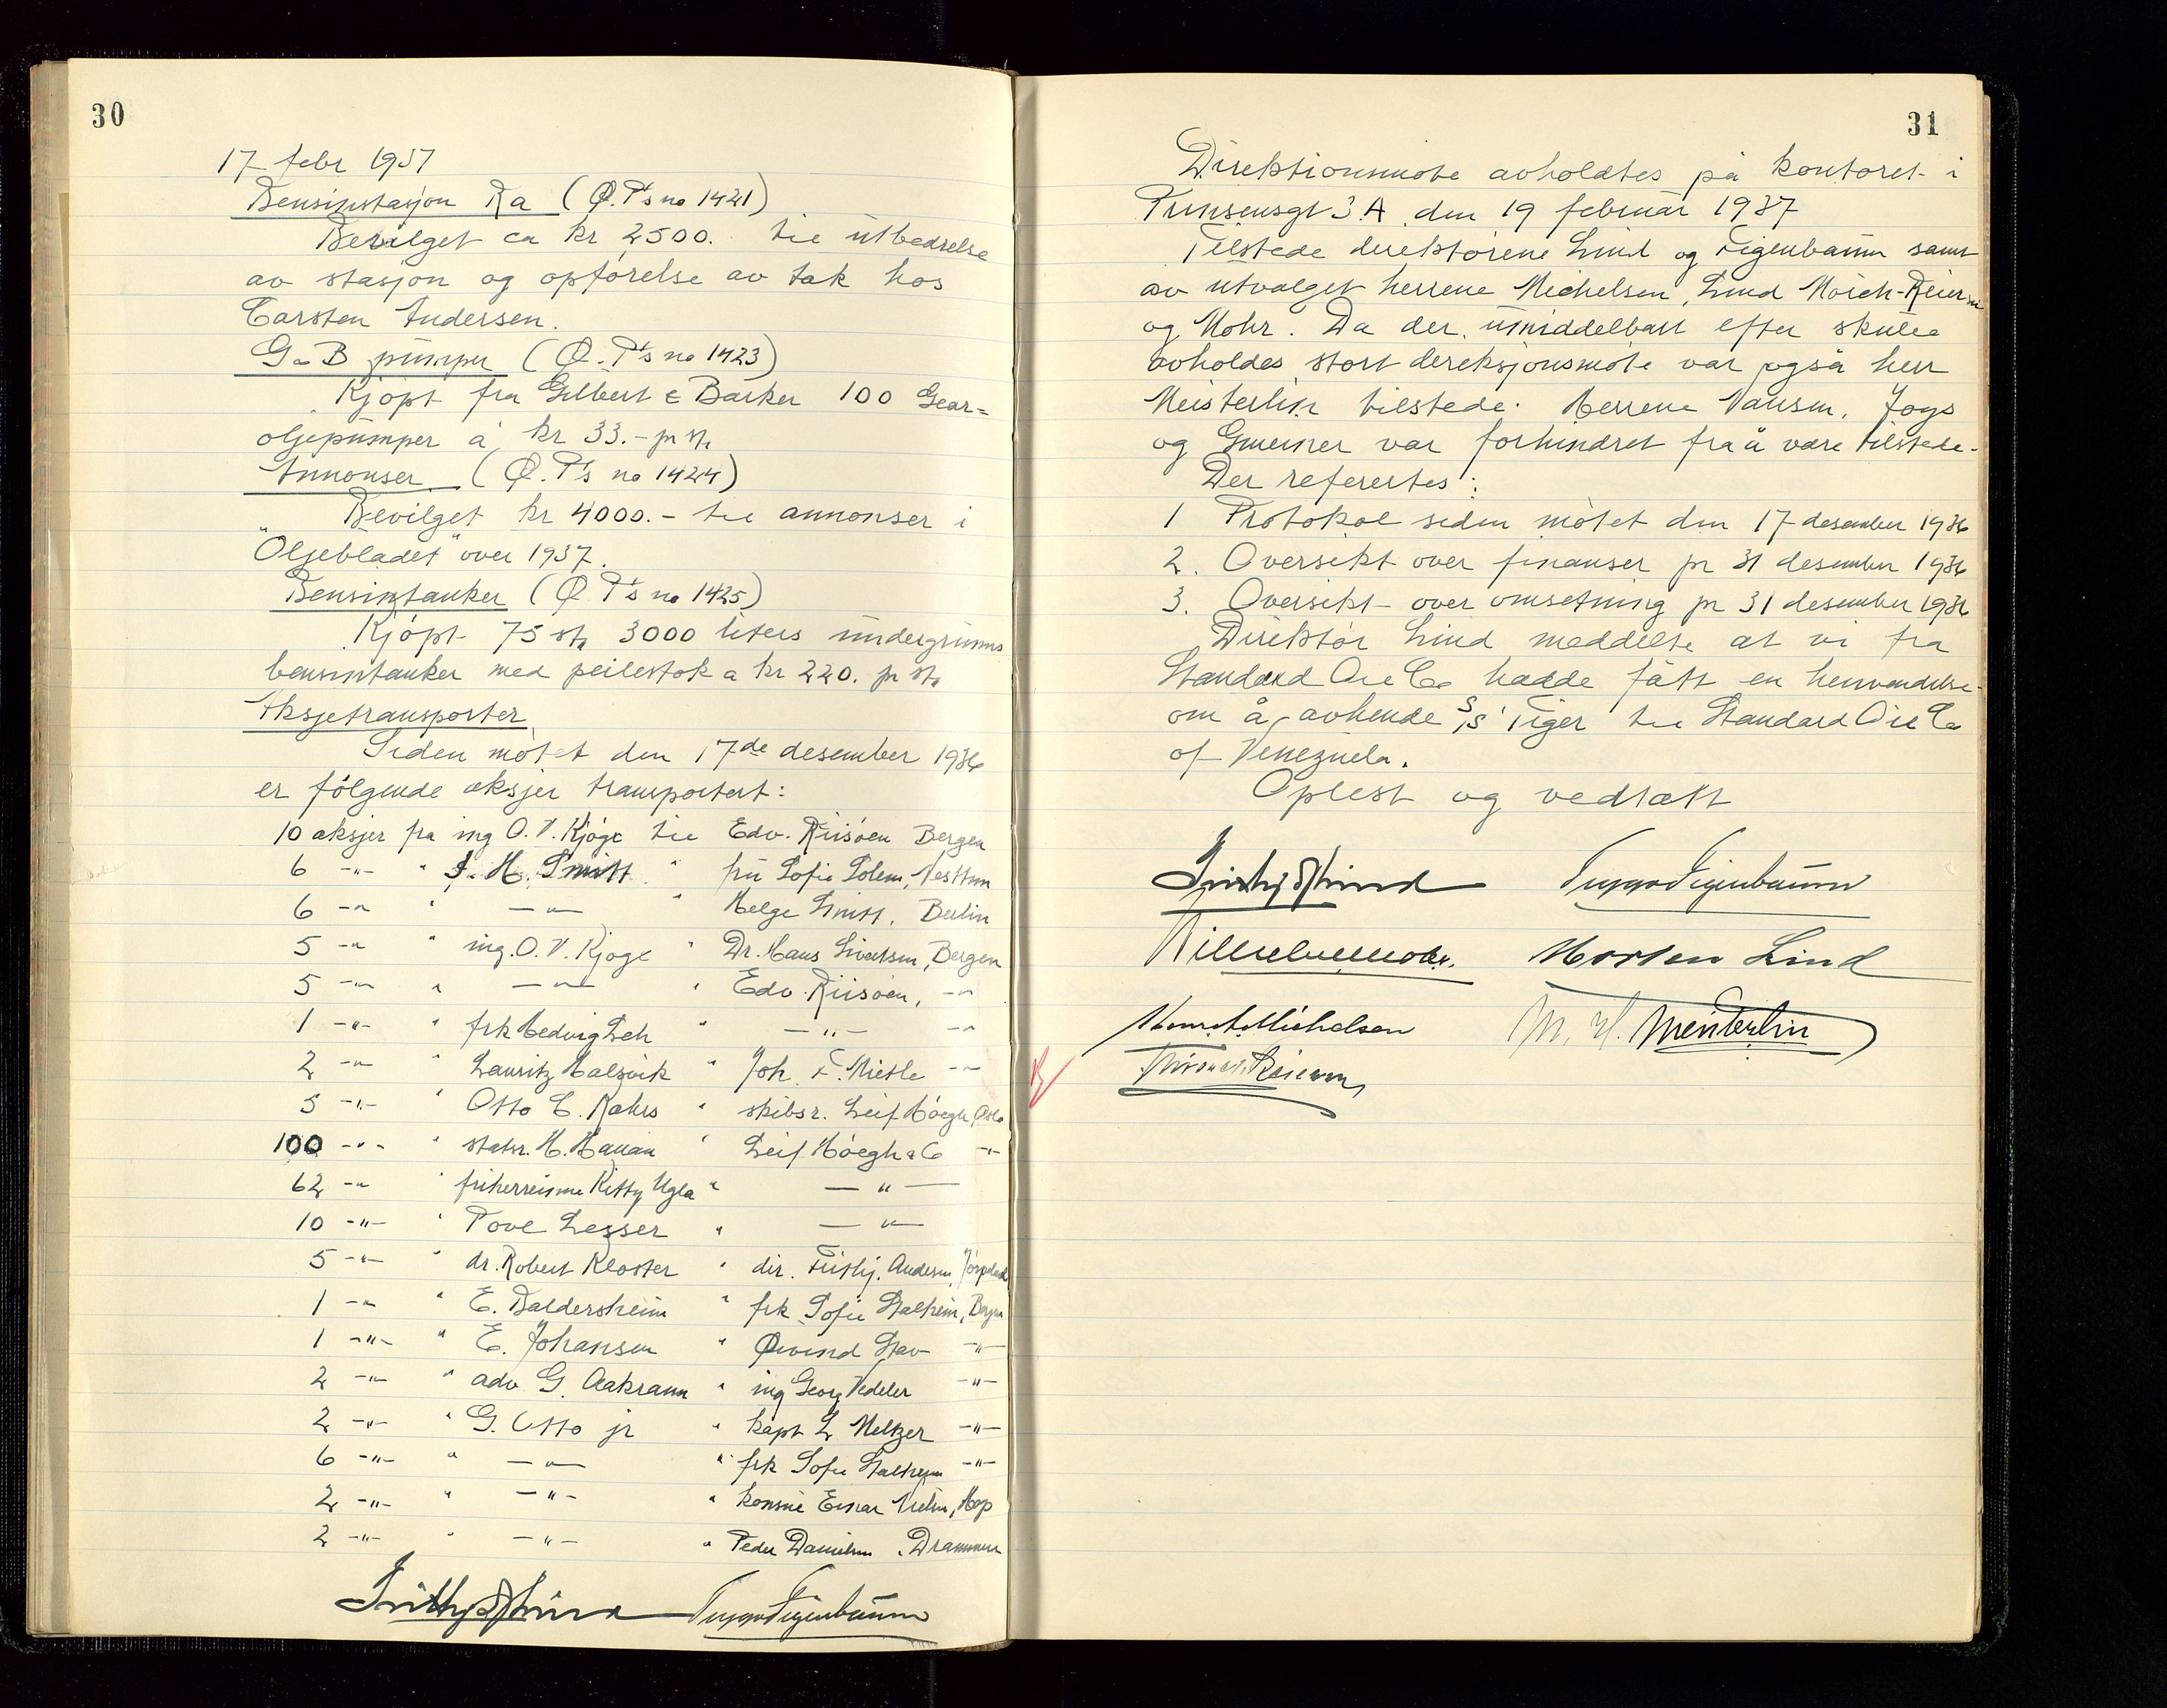 30
17 febr 1937
Bensinstasjon Ra (Ø.T's no 1421)
Bevilget ca kr 2500. til utbedrelse
av stasjon og opførelse av tak hos
Carsten Andersen.
G & B pumper (Ø.T's no 1423)
Kjøpt fra Gilbert & Barker 100 Gear=
oljepumper á kr 33.- pr stk
Annonser (Ø.T's no 1424)
Bevilget kr 4000.- til annonser i
"Oljebladet" over 1937.
Bensintanker (Ø T's no 1425)
Kjøpt 75 stk 3000 liters undergrunns
bensintanker med peilestok a kr 220. pr stk
Aksjetransporter
Siden møtet den 17de desember 1936
er følgende aksjer transportert:
10 aksjer fra ing O.V. Kjøge til Edv. Riisøen Bergen
6 -"- " J. H. Smitt " fru Sofie Solem, Nesttun
6 -"- " -"- " Helge Smitt, Berlin
5 -"- " ing. O.V. Kjøge " Dr. Hans Sivertsen, Bergen
5 -"- " -"- " Edv. Riisøen, -"-
1 -"- " frk Hedvig Leh " -"- -"-
2 -"- " Lauritz Halsvik " Joh. F. Mietle -"-
5 -"- " Otto C. Kahrs " skibsr. Leif Höegh, Oslo
100 -"- " statsr. H. Hauan " Leif Höegh & Co -"-
62 -"- " friherreinne Kitty Ugla " -"-
10 -"- " Tove Lesser " -"-
5 -"- " dr. Robert Kloster " dir. Frithj. Andersen, Jørpeland
1 -"- " E. Baldersheim " frk Sofie Stalheim, Bergen
1 -"- " E. Johansen " Øivind Stav -"-
2 -"- " adv G. Aakrann " ing Georg Vedeler -"-
2 -"- " G. Otto jr " kapt L Meltzer -"-
6 -"- " -"- " frk Sofie Stalheim -"-
2 -"- " -"- " konsul Einar Hop
2 -"- " -"- " Peder Danielsen, Drammen
Frithjof Lind Trygve Figenbaum
31
Direktionsmøte avholdtes på kontoret i
Prinsensgt 3.A. den 19 februar 1937
Tilstede direktørene Lind og Figenbaum samt
av utvalget herrene Michelsen, Lind Mørch-Reiersen
og Mohr. Da der umiddelbart efter skulle
avholdes stort direksjonsmøte var også herr
Meisterlin tilstede. Herrene Nansen, Joys
og Gmeiner var forhindret fra å være tilstede.
Der refertes:
1 Protokol siden møtet den 17 desember 1936
2. Oversikt over finanser pr 31 desember 1936
3. Oversikt over omsetning pr 31 desember 1936
Direktør Lind meddelte at vi fra
Standard Oil Co hadde fått en henvendelse
om å avhende S/S Tiger til Standard Oil Co
of Venezuela.
Oplest og vedtatt
Frithjof Lind Trygve Figenbaum
Wilhelm Mohr. Morten Lind
Michelsen M. H. Meisterlin
Reiersen